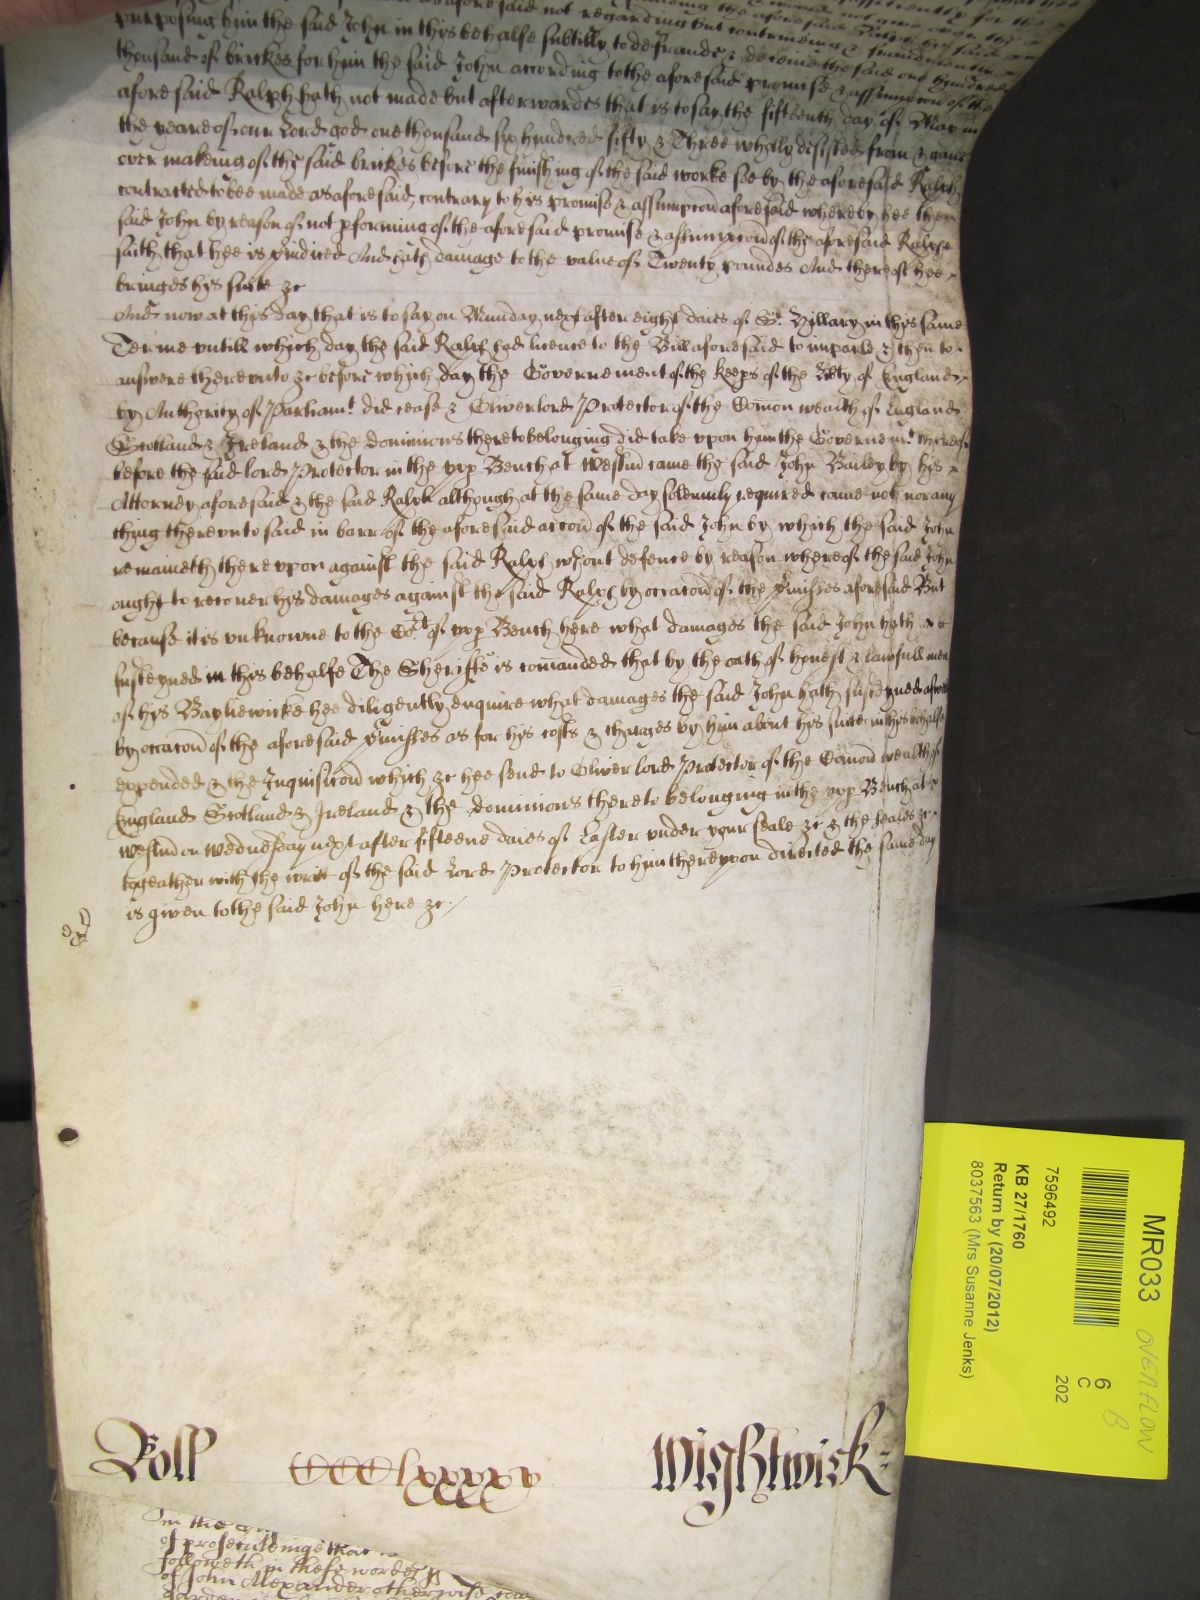 aforesaid not regarding but contriveing & fraudulently
purposing him the said John in this behalfe subtilly to defraude & deceive the said one hundred
thousand of brickes for him the said John according to the aforesaid promise & assumpcon of the
aforesaid Ralph hath not made but afterwardes that is to say the fifteenth day of May in
the yeare of our Lord god one thousand six hundred fifty & Three wholly desisted from & gave
over makeing of the said brickes before the finishing of the said worke soe by the aforesaid Ralph
contracted to bee made as aforesaid contrary to his promise & assumpcon aforesaid whereby hee the
said John by reason of not pforming of the aforesaid promise & assumpcon of the aforesaid Ralph
saith that hee is piudiced And hath damage to the value of Twenty poundes And thereof hee
bringes his suite &c
And now at this day that is to say on Munday next after eight daies of St. Hillary in this same
Terme untill which day the said Ralph had licence to the Bill aforesaid to imparle & then to
answere thereunto &c before which day the Governement of the keeps of the libty of England
by Authority of Parliamt. did cease & Oliver lord Protector of the Comon wealth of England
Scotland & Ireland & the dominions thereto belonging did take upon him the Governemt. thereof
before the said lord Protector in the upp Bench at Westm came the said John Bailey by his
Attorney aforesaid & the said Ralph although at the same day solemnly required came not nor any
thing thereunto said in barr of the aforesaid accon of the said John by which the said John
remaineth thereupon against the said Ralph wthout defence by reason whereof the said John
ought to recover his damages against the said Ralph by occacon of the pmisses aforesaid But
because it is unknowne to the Cort of upp Bench here what damages the said John hath
susteyned in this behalfe The Sheriffe is comanded that by the oath of honest & lawfull men
of his Bayliewicke hee diligently enquire what damages the said John hath susteyned aswell
by occacon of the aforesaid pmisses as for his costs & charges by him about his suite in this behalfe
expended & the Inquisicon which &c hee send to Oliver lord Protector of the Comon wealth of
England Scotland & Ireland & the dominions thereto belonging in the upp Bench at
Westm on Wednesday next after fifteene daies of Easter under your seale &c & the seales &c
togeather with the writt of the said Lord Protector to him thereupon directed the same day
is given to the said John here &c
Roll CCClxxxxv Wightwick
in the
of prosecuteinge that
followeth in these wordes
of John Alexander otherwise
MR033 OVERFLOW
6 B
C
202
7596492
KB 27/1760
Return by (20/07/2012)
8037563 (Mrs Susanne Jenks)